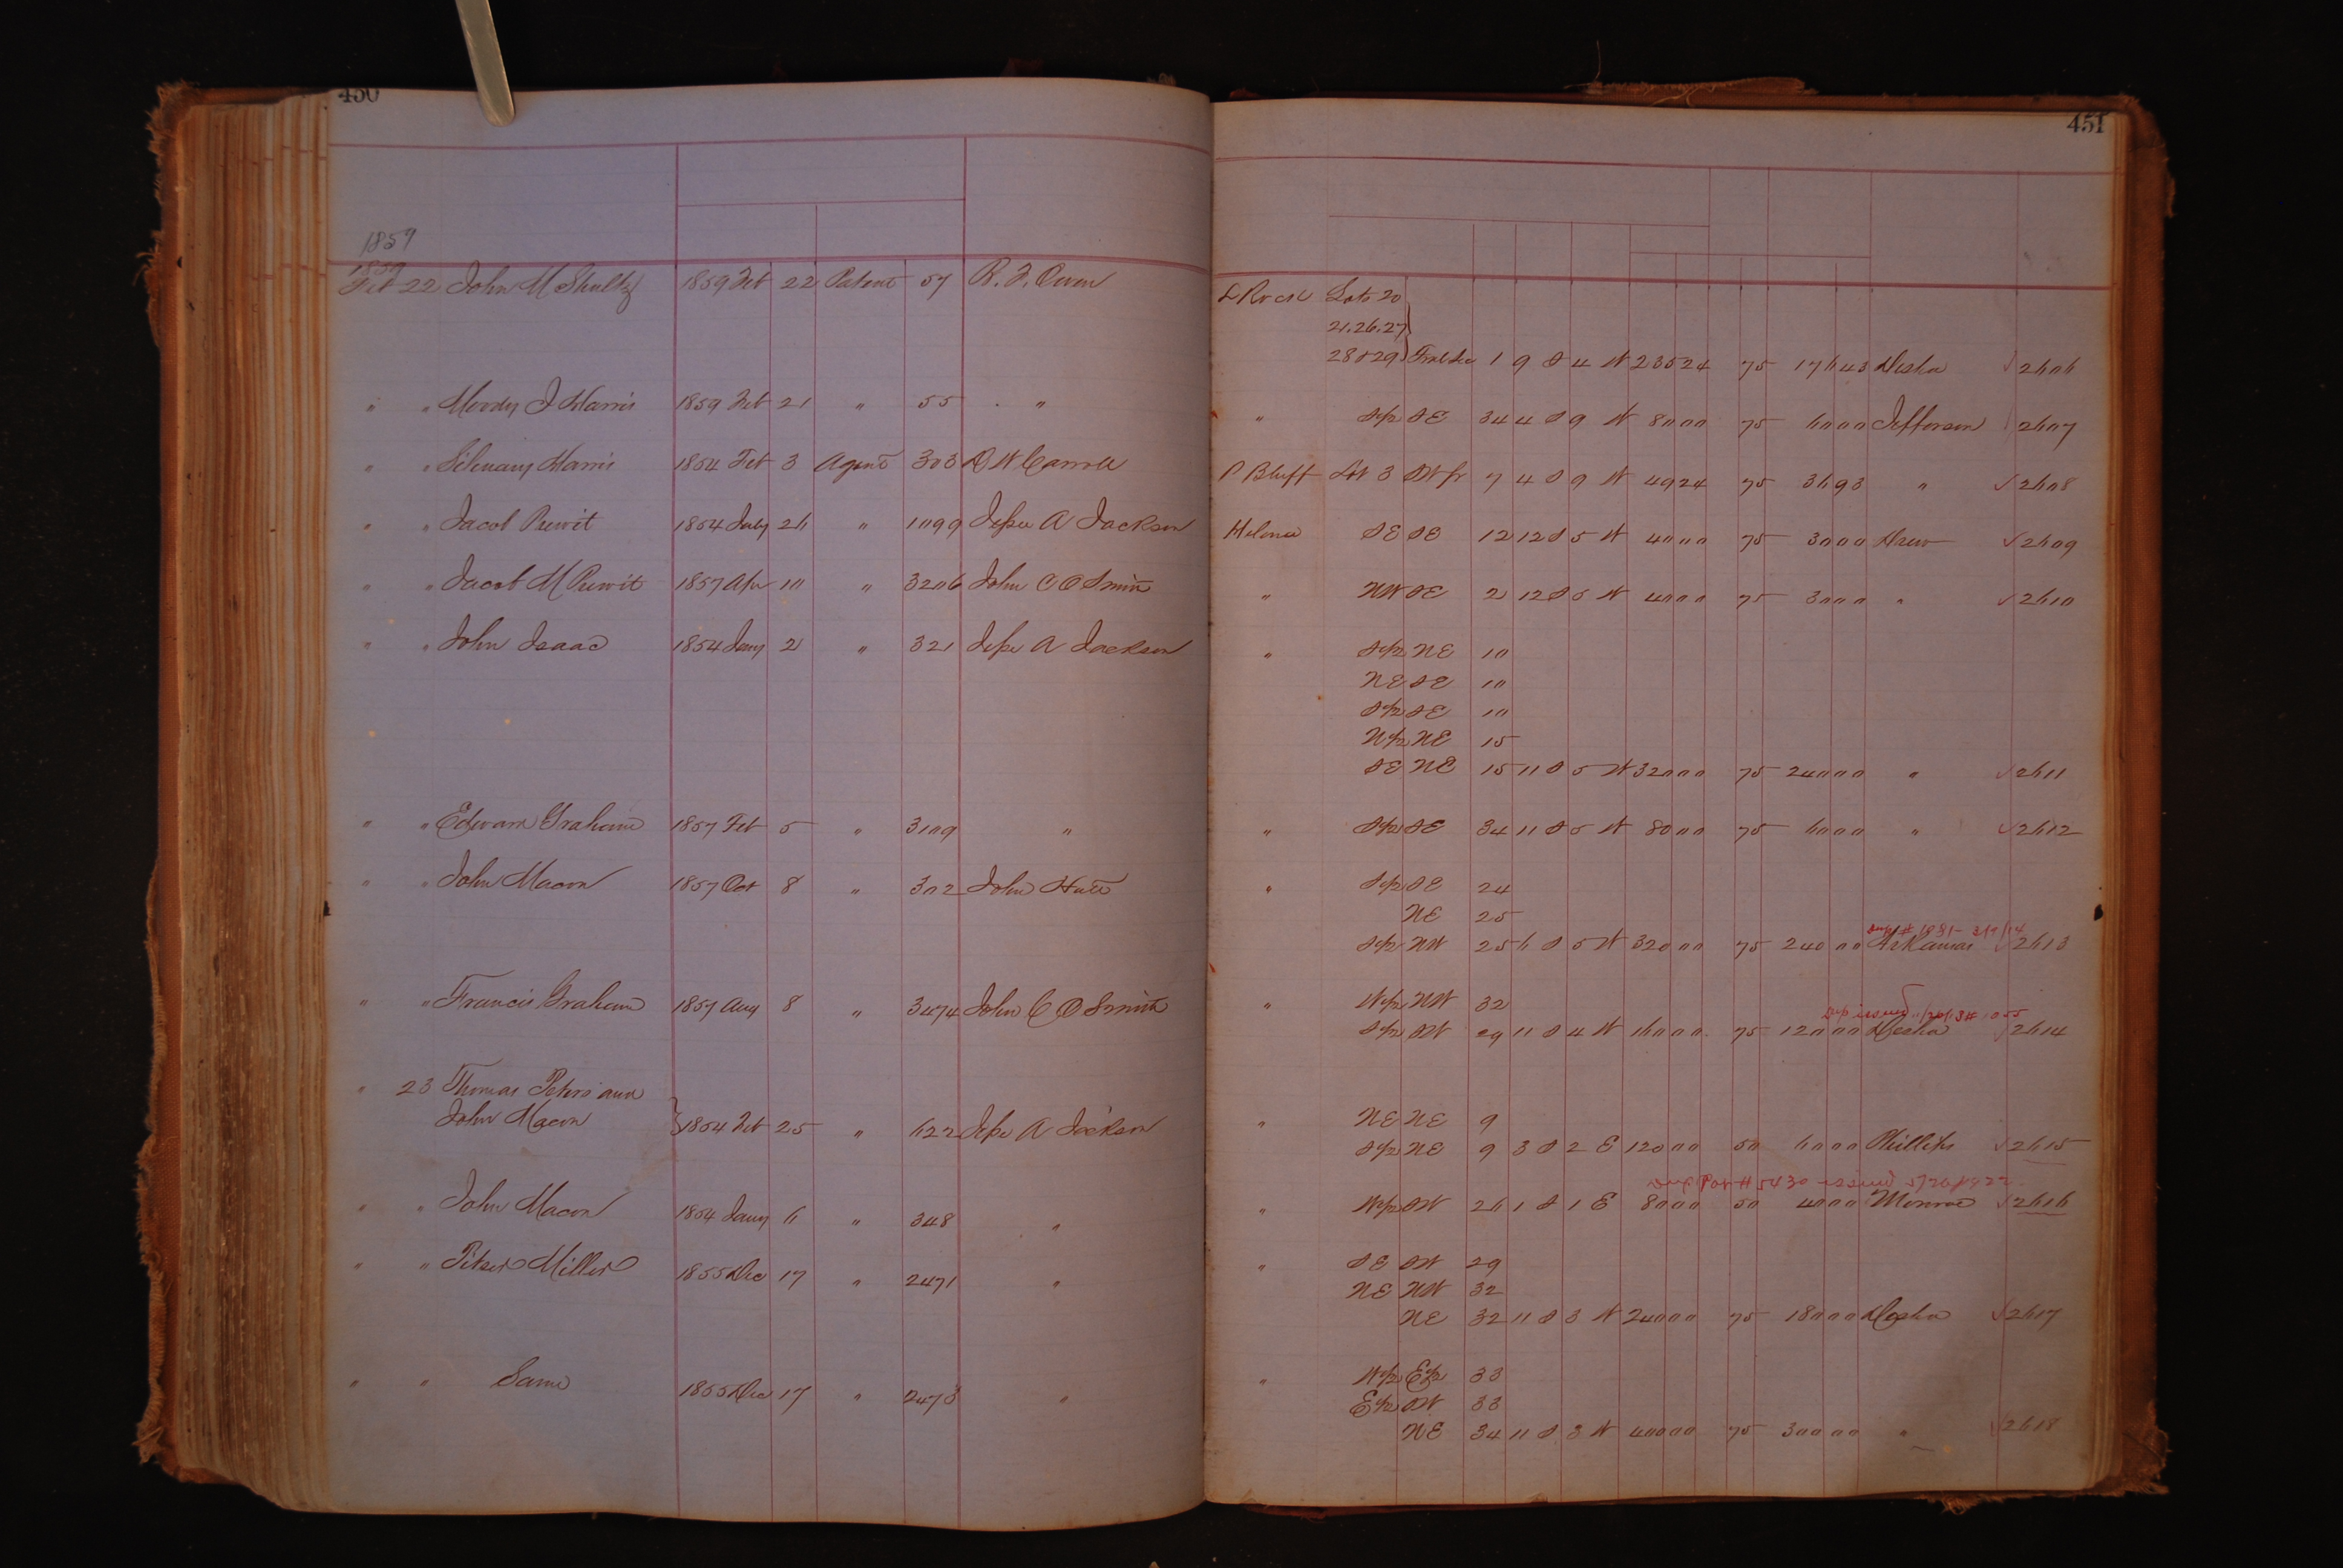 450
451
1859
1859
Feb 22 John M Shultz 1859 Feb 22 Patent 57 R. F. Owen L Rock Lots 20
21.26.27
28 & 29 Frac Sec 1 9 S 4 W 235 24 75 176 43 Desha √ 2606
" " Moody J Harris 1859 Feb 21 " 55 " " S½ SE 34 4 S 9 W 80 00 75 60 00 Jefferson √ 2607
" " Harris 1854 Feb 3 Agent 303 D W Carroll P Bluff Lot 3 SW fr 7 4 S 9 W 49 24 75 36 93 " √ 2608
" " Jacob Prewit 1854 July 26 " 1099 Jesse A Jackson Helena SE SE 12 12 S 5 W 40 00 75 30 00 Drew √ 2609
" " Jacob M Prewit 1857 Apr 10 " 3206 John C O Smith " NW SE 2 12 S 5 W 40 00 75 30 00 " √ 2610
" " John Isaac 1854 Jany 2 " 321 Jesse A Jackson " S½ NE 10
NE SE 10
S½ SE 10
N½ NE 15
SE NE 15 11 S 5 W 320 00 75 240 00 " √ 2611
" " Edward Graham 1857 Feb 5 " 3109 " " S½ SE 34 11 S 5 W 80 00 75 60 00 " √ 2612
" " John Macon 1857 Oct 8 " 302 John Hutt " S½ SE 24
NE 25
S½ NW 25 6 S 5 W 320 00 75 240 00 Arkansas √ 2613
" " Francis Graham 1857 Aug 8 " 3474 John C O Smith " W½ NW 32
S½ SW 29 11 S 4 W 160 00 75 120 00 Desha √ 2614
" 23 Thomas Peters and
John Macon 1854 Feb 25 " 622 Jesse A Jackson " NE NE 9
S½ NE 9 3 S 2 E 120 00 50 60 00 Phillips √ 2615
Dup Pat # 5430 issued 5/20/1822
" " John Macon 1854 Jany 6 " 348 " " W½ SW 26 1 S 1 E 80 00 50 40 00 Monroe √ 2616
" " Pitser Miller 1855 Dec 17 " 2471 " " SE SW 29
NE NW 32
NE 32 11 S 3 W 240 00 75 180 00 Desha √ 2617
" " Same 1855 Dec 17 " 2473 " " W½ E½ 33
E½ SW 33
NE 34 11 S 3 W 400 00 75 300 00 " √ 2618